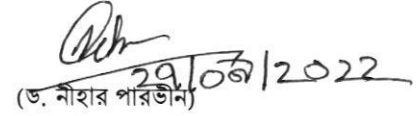 29/06/2022
(ড. নীহার পারভীন)